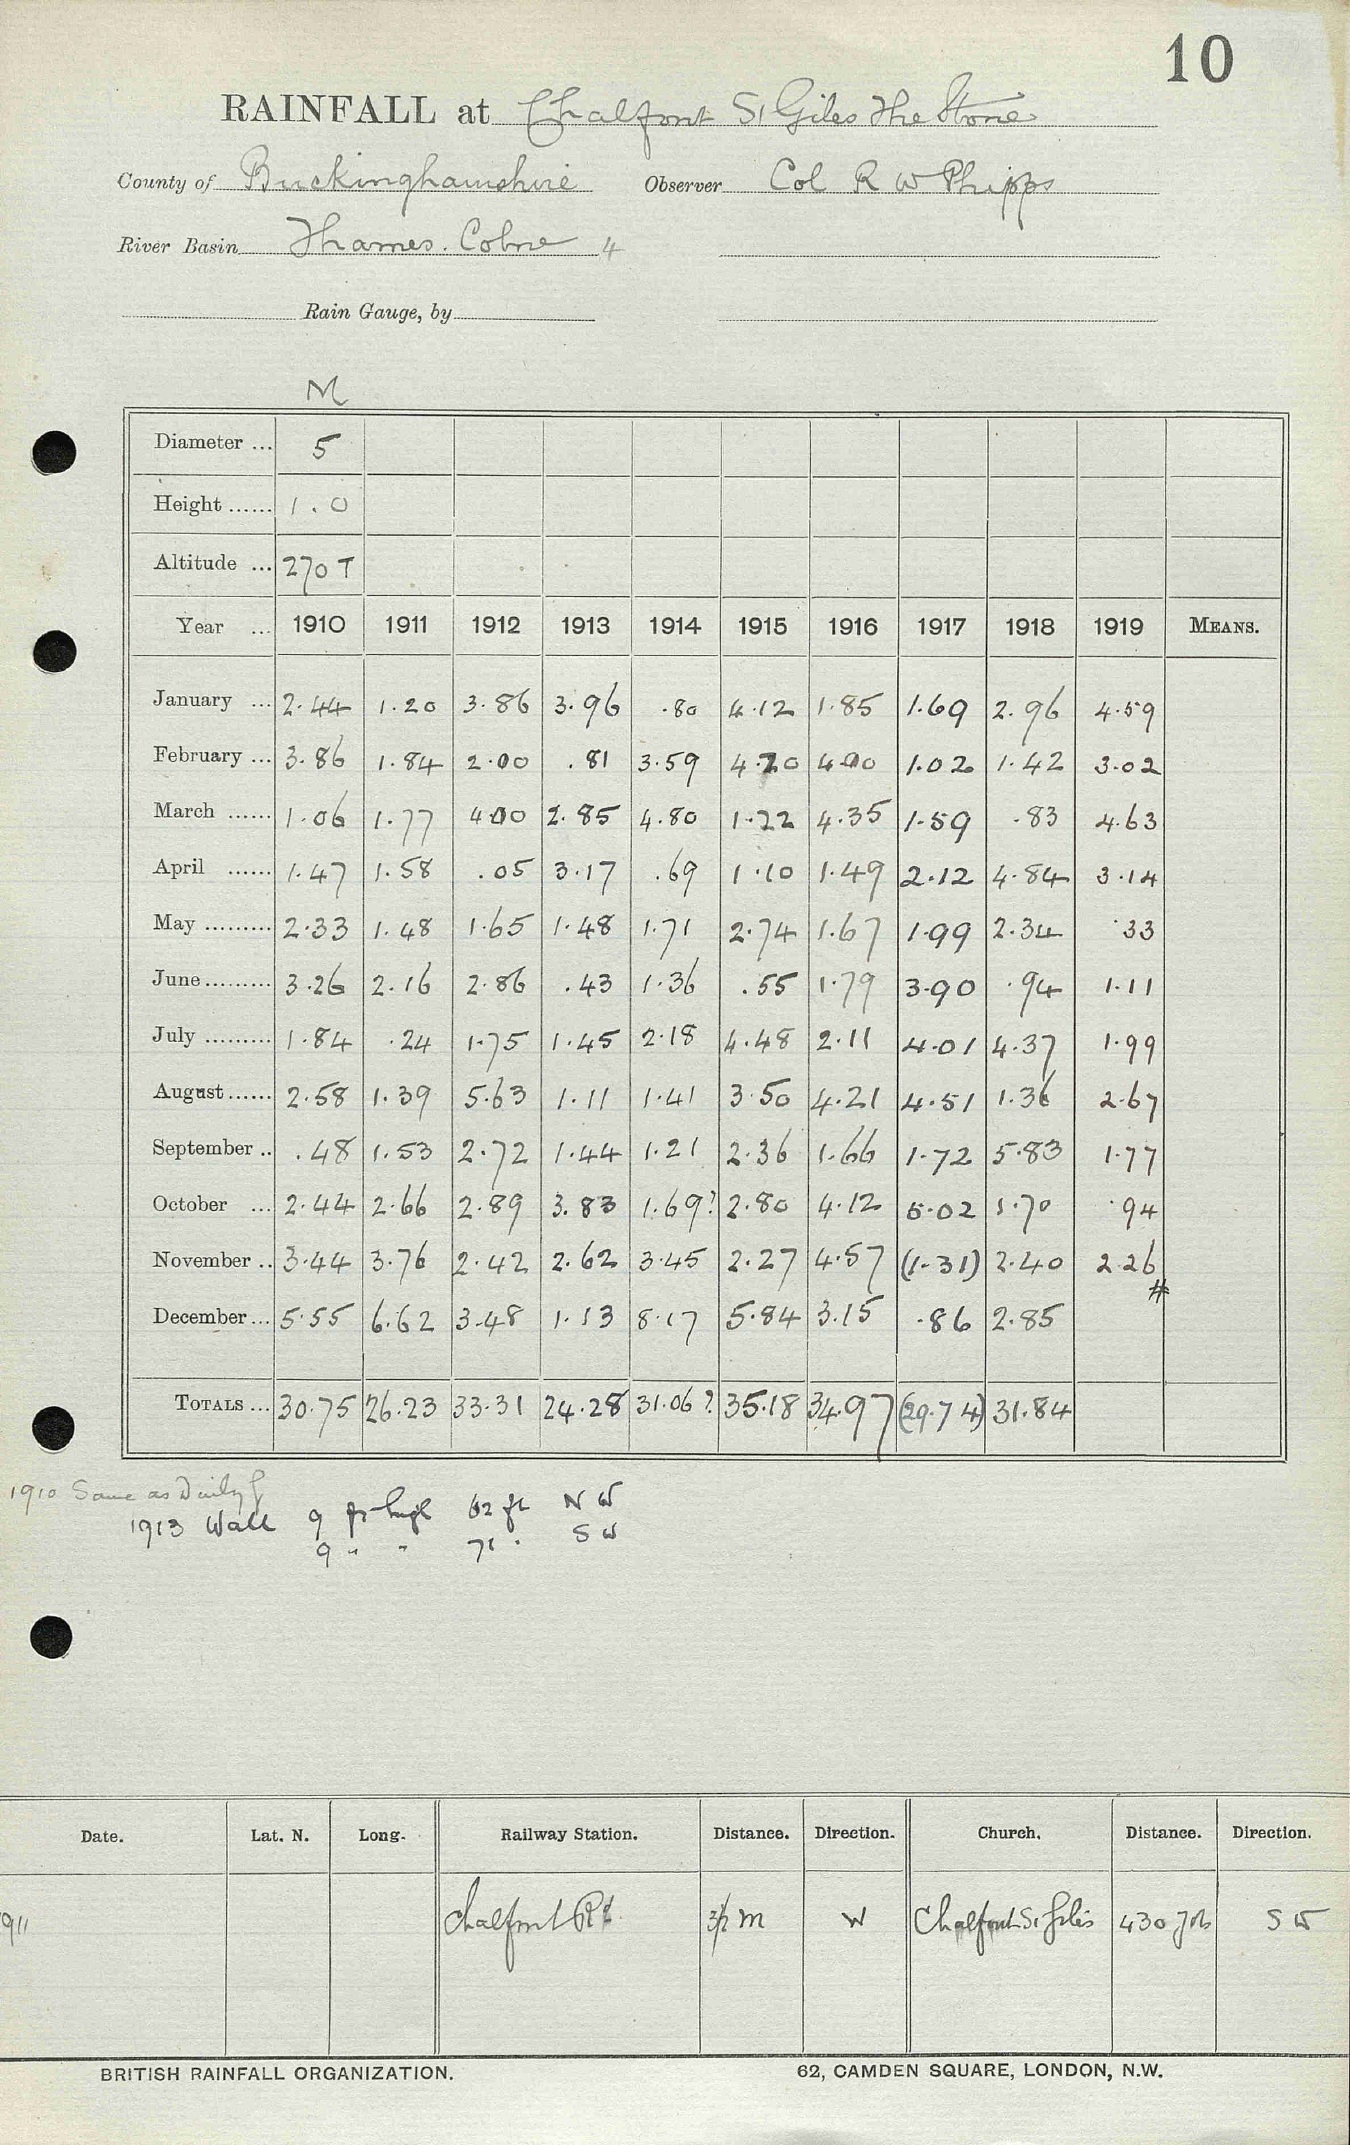 10
RAINFALL at Chalfont St Giles The Stone
County of Buckinghamshire Observer Col R W Phipps
River Basin Thames. Colne 4
Rain Gauge, by
M
Diameter ... 5
Height ...... 1.0
Altitude ... 270 T
Year ... 1910 1911 1912 1913 1914 1915 1916 1917 1918 1919 MEANS.
January ... 2.44 1.20 3.86 3.96 .80 4.12 1.85 1.69 2.96 4.59
February ... 3.86 1.84 2.00 .81 3.59 4.20 4.00 1.02 1.42 3.02
March ...... 1.06 1.77 4.00 2.85 4.80 1.22 4.35 1.59 .83 4.63
April ...... 1.47 1.58 .05 3.17 .69 1.10 1.49 2.12 4.84 3.14
May ......... 2.33 1.48 1.65 1.48 1.71 2.74 1.67 1.99 2.34 .33
June ......... 3.26 2.16 2.86 .43 1.36 .55 1.79 3.90 .94 1.11
July ......... 1.84 .24 1.75 1.45 2.18 4.48 2.11 4.01 4.37 1.99
August ...... 2.58 1.39 5.63 1.11 1.41 3.50 4.21 4.51 1.36 2.67
September .. .48 1.53 2.72 1.44 1.21 2.36 1.66 1.72 5.83 1.77
October ... 2.44 2.66 2.89 3.83 1.69? 2.80 4.12 5.02 1.70 .94
November .. 3.44 3.76 2.42 2.62 3.45 2.27 4.57 (1.31) 2.40 2.26 #
December ... 5.55 6.62 3.48 1.13 8.17 5.84 3.15 .86 2.85
TOTALS ... 30.75 26.23 33.31 24.28 31.06? 35.18 34.97 (29.74) 31.84
1910 Same as Daily
1913 Wall 9 ft high 62 ft N W
9 " " 71 " S W
Date. Lat. N. Long. Railway Station. Distance. Direction. Church. Distance. Direction.
911 Chalfont Rd 3½ m W Chalfont St Giles 430 yds S W
BRITISH RAINFALL ORGANIZATION. 62, CAMDEN SQUARE, LONDON, N.W.